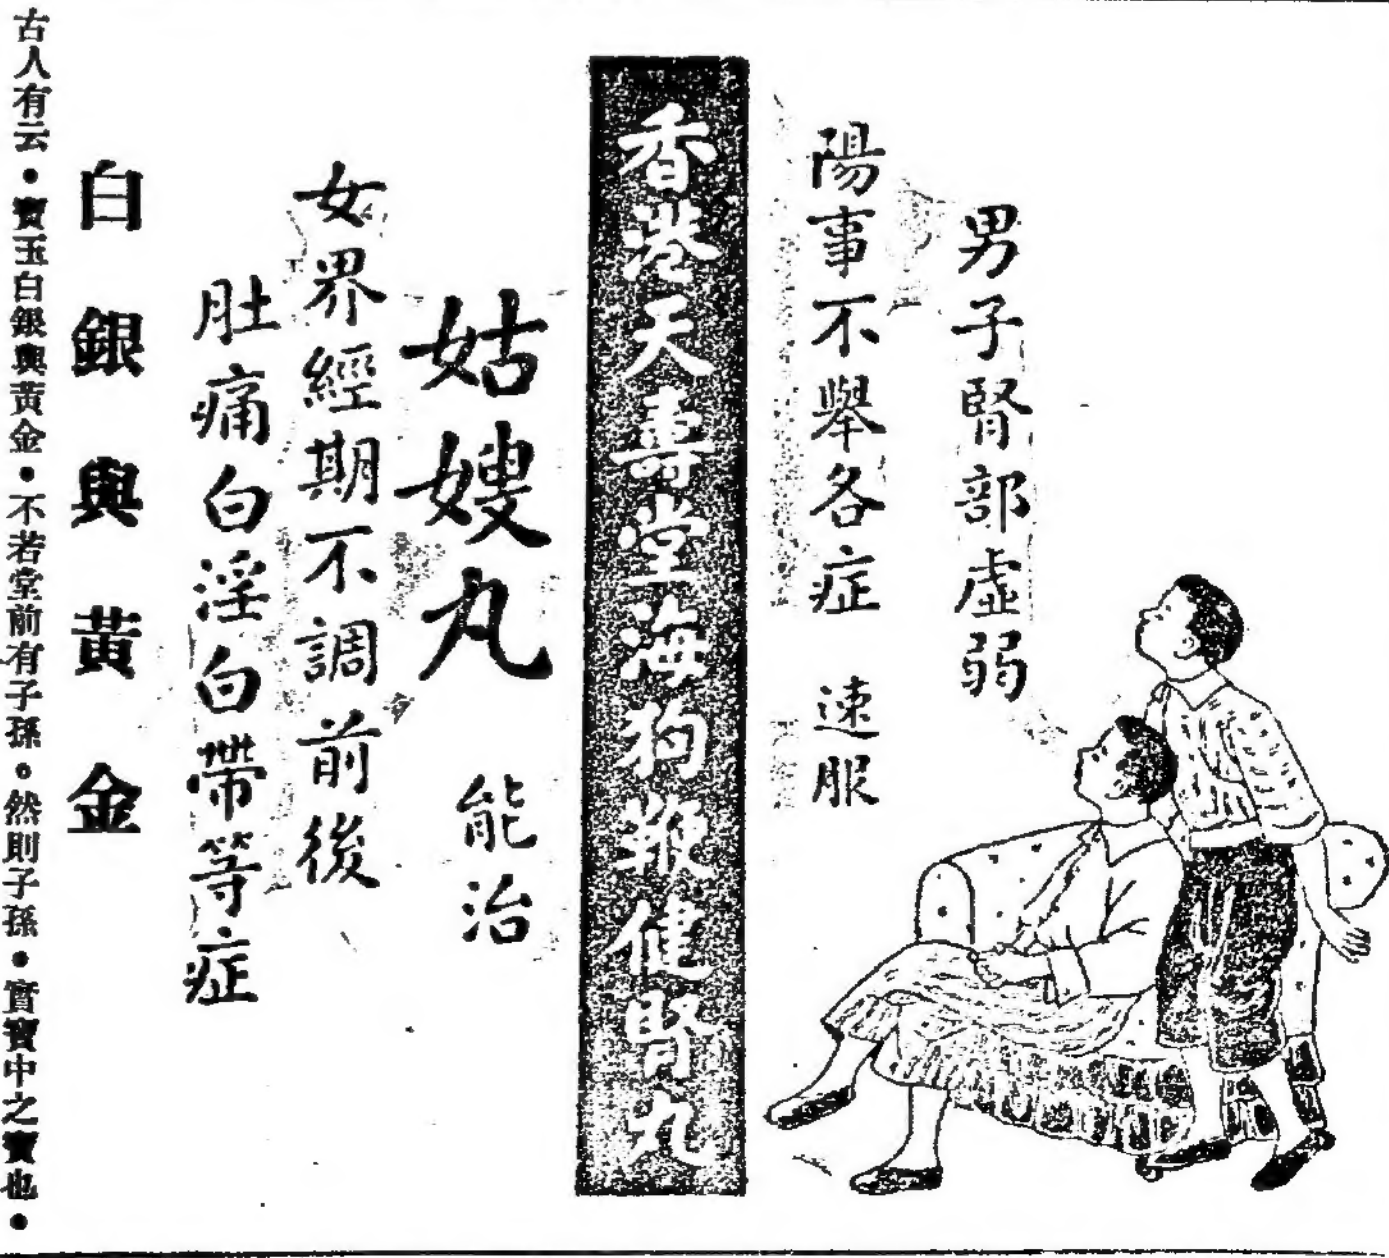 男子腎部虛弱
陽事不舉各症 速服
香港天壽堂海狗鞭健腎丸
姑嫂丸 能治
女界經期不調前後
肚痛白淫白帶等症
白銀與黃金
古人有云•寶玉白銀與黃金•不若堂前有子孫。然則子孫•實寶中之寶也•